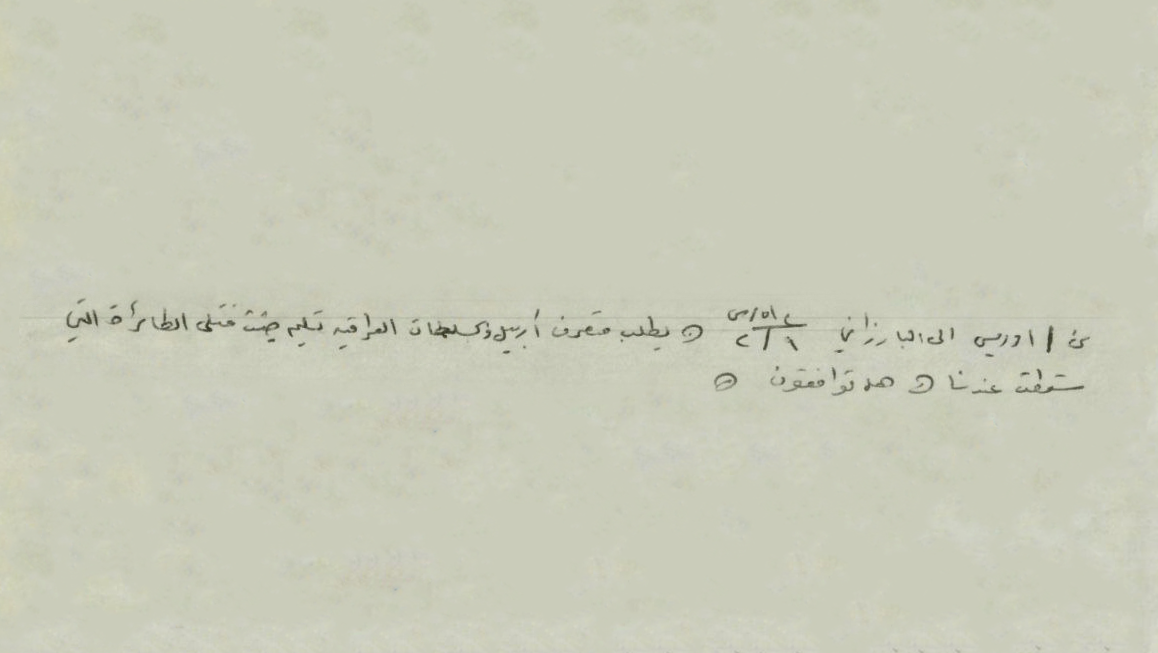 من / ادريس الى البارزاني ٩/٢ ⊙ يطلب متصرف أربيل والسلطات العراقيه تسليم جثث قتلى الطائرة التي
سقطت عندنا ⊙ هل توافقون ⊙